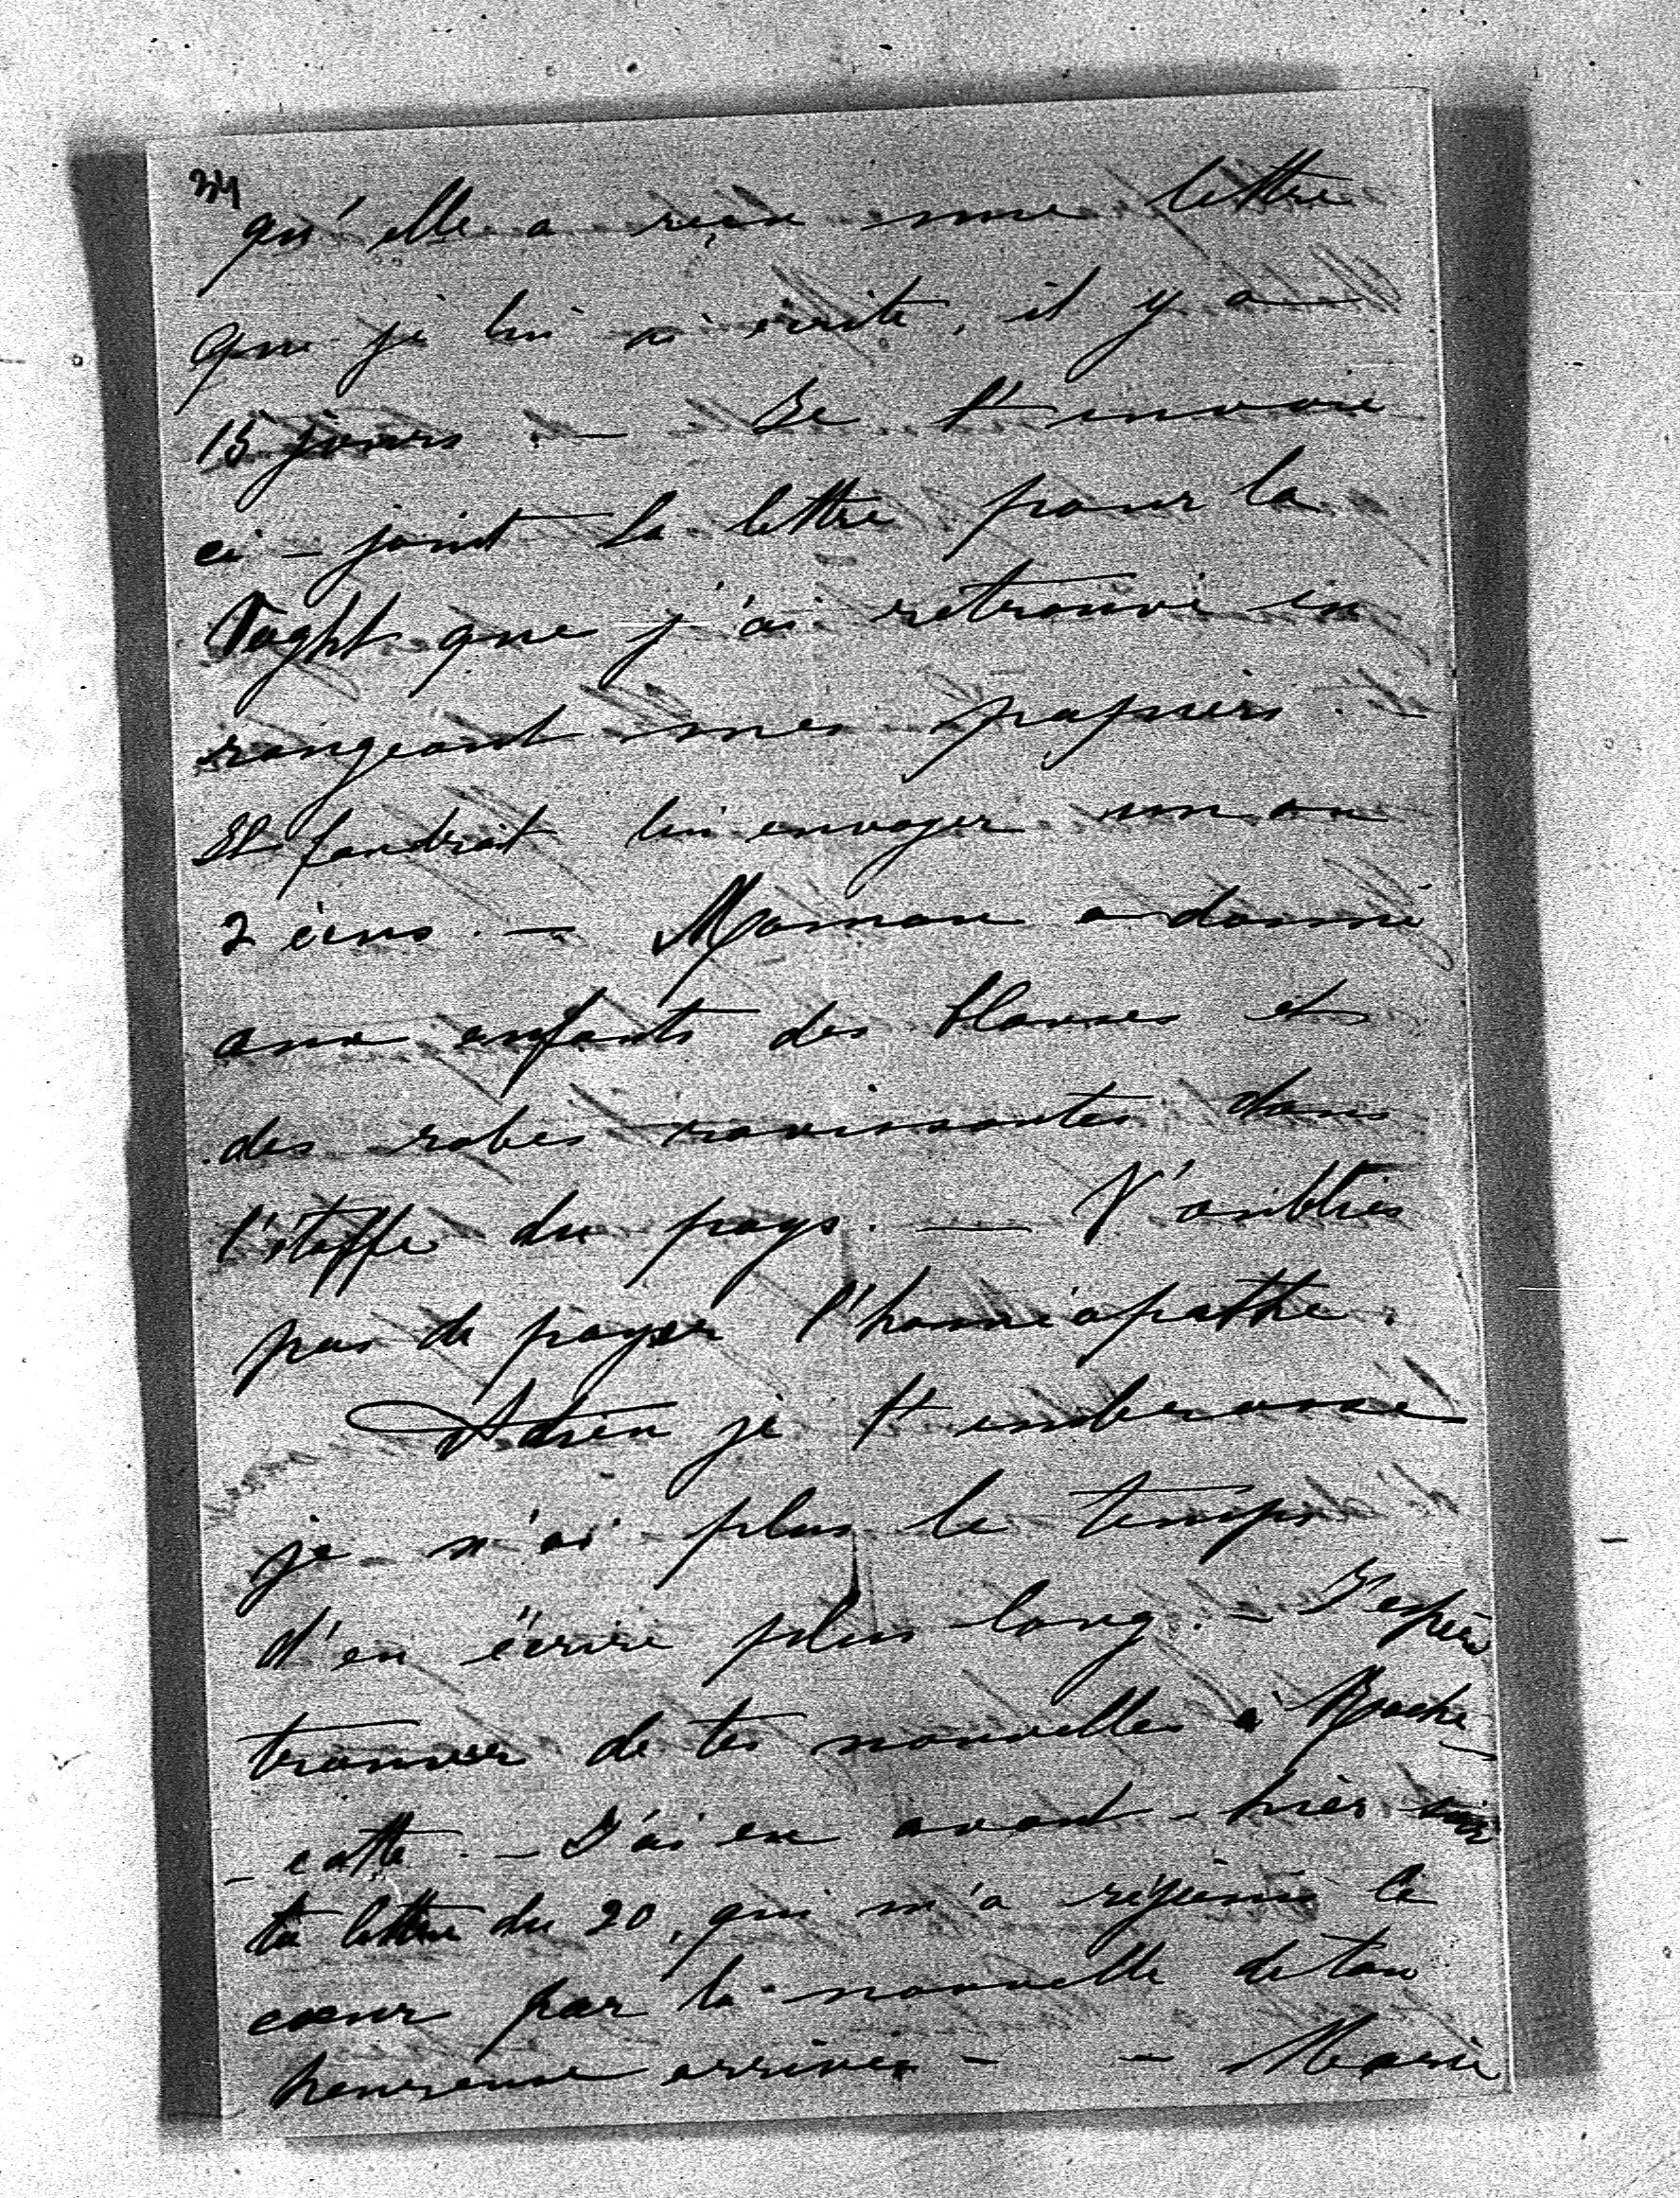 34
qu'elle a reçu une lettre
que je lui ai écrite, il y a
15 jours. — Je t'envoie
ci-joint la lettre pour la
Voght que j'ai retrouvé en
rangeant mes papiers. —
Il faudrait lui envoyer un ou
2 écus. — Maman a donné
aux enfants des blouses et
des robes ravissantes dans
l'étoffe du pays. — N'oublies
pas de payer l'homéopathe.
Adieu je t'embrasse
je n'ai plus le temps
d'en écrire plus long. — J'espère
trouver de tes nouvelles à Roche-
-cotte. — J'ai eu avant-hier soir
ta lettre du 20, qui m'a réjouis le
cœur par la nouvelle de ton
heureuse arrivée — — Marie